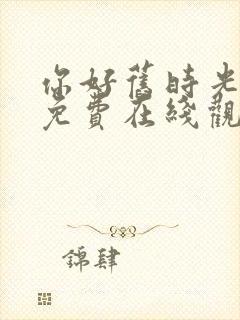 你好舊時光
免費在綫觀
錦肆